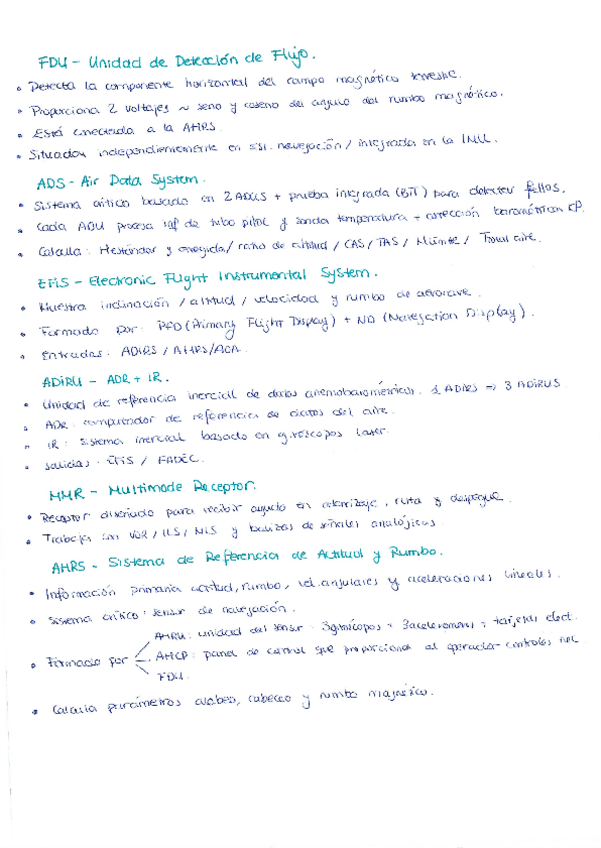 FDU - Unidad de Detección de Flujo.
• Detecta la componente horizontal del campo magnético terrestre.
• Proporciona 2 voltajes ~ seno y coseno del angulo del rumbo magnético.
• Está conectada a la AHRS.
• Situadas independientemente en sist. navegación / integradas en la IMU.
ADS - Air Data System.
• Sistema crítico basado en 2 ADUs + prueba integrada (BIT) para detectar fallos.
• Cada ADU procesa inf de tubo pitot y sonda temperatura + corrección barométrica CP.
• Calcula: Hestándar y corregida / ratio de altitud / CAS / TAS / Mlímite / Ttotal aire.
EFIS - Electronic Flight Instrumental System.
• Muestra inclinación / altitud / velocidad y rumbo de aeronave.
• Formado por: PFD (Primary Flight Display) + ND (Navegation Display).
• Entradas: ADIRS / AHRS / ACA.
ADIRU - ADR + IR.
• Unidad de referencia inercial de datos anemobarométricos. 1 ADIRS => 3 ADIRUS
• ADR: computador de referencia de datos del aire.
• IR: sistema inercial basado en giróscopos laser.
• salidas: EFIS / FADEC.
MMR - Multimode Receptor.
• Receptor diseñado para recibir ayuda en aterrizaje, ruta y despegue.
• Trabaja con VOR / ILS / MLS y balizas de señales analógicas.
AHRS - Sistema de Referencia de Actitud y Rumbo.
• Información primaria actitud, rumbo, vel. angulares y aceleraciones lineales.
• Sistema crítico: sensor de navegación.
AHRU: unidad del sensor: 3giróscopos + 3acelerómetros + tarjetas elect.
• Formado por AHCP: panel de control que proporciona al operador controles
FDU.
• Calcula parámetros alabeo, cabeceo y rumbo magnético.